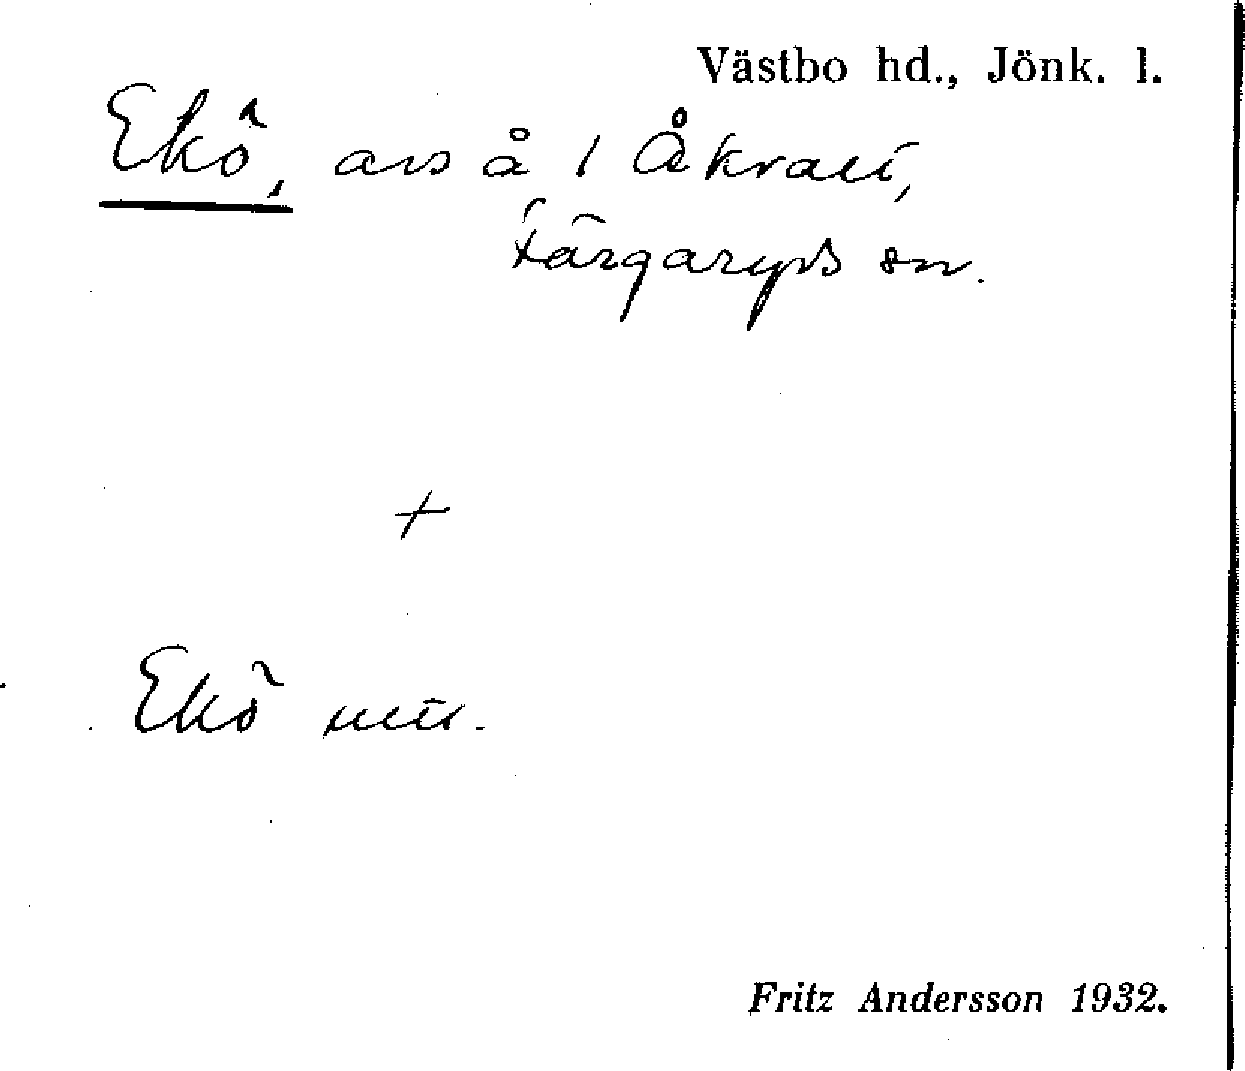 Västbo hd., Jönk. l.
Ekö, avs å 1 Åkvall,
Färgaryds sn.
+
Ekö
Fritz Andersson 1932.